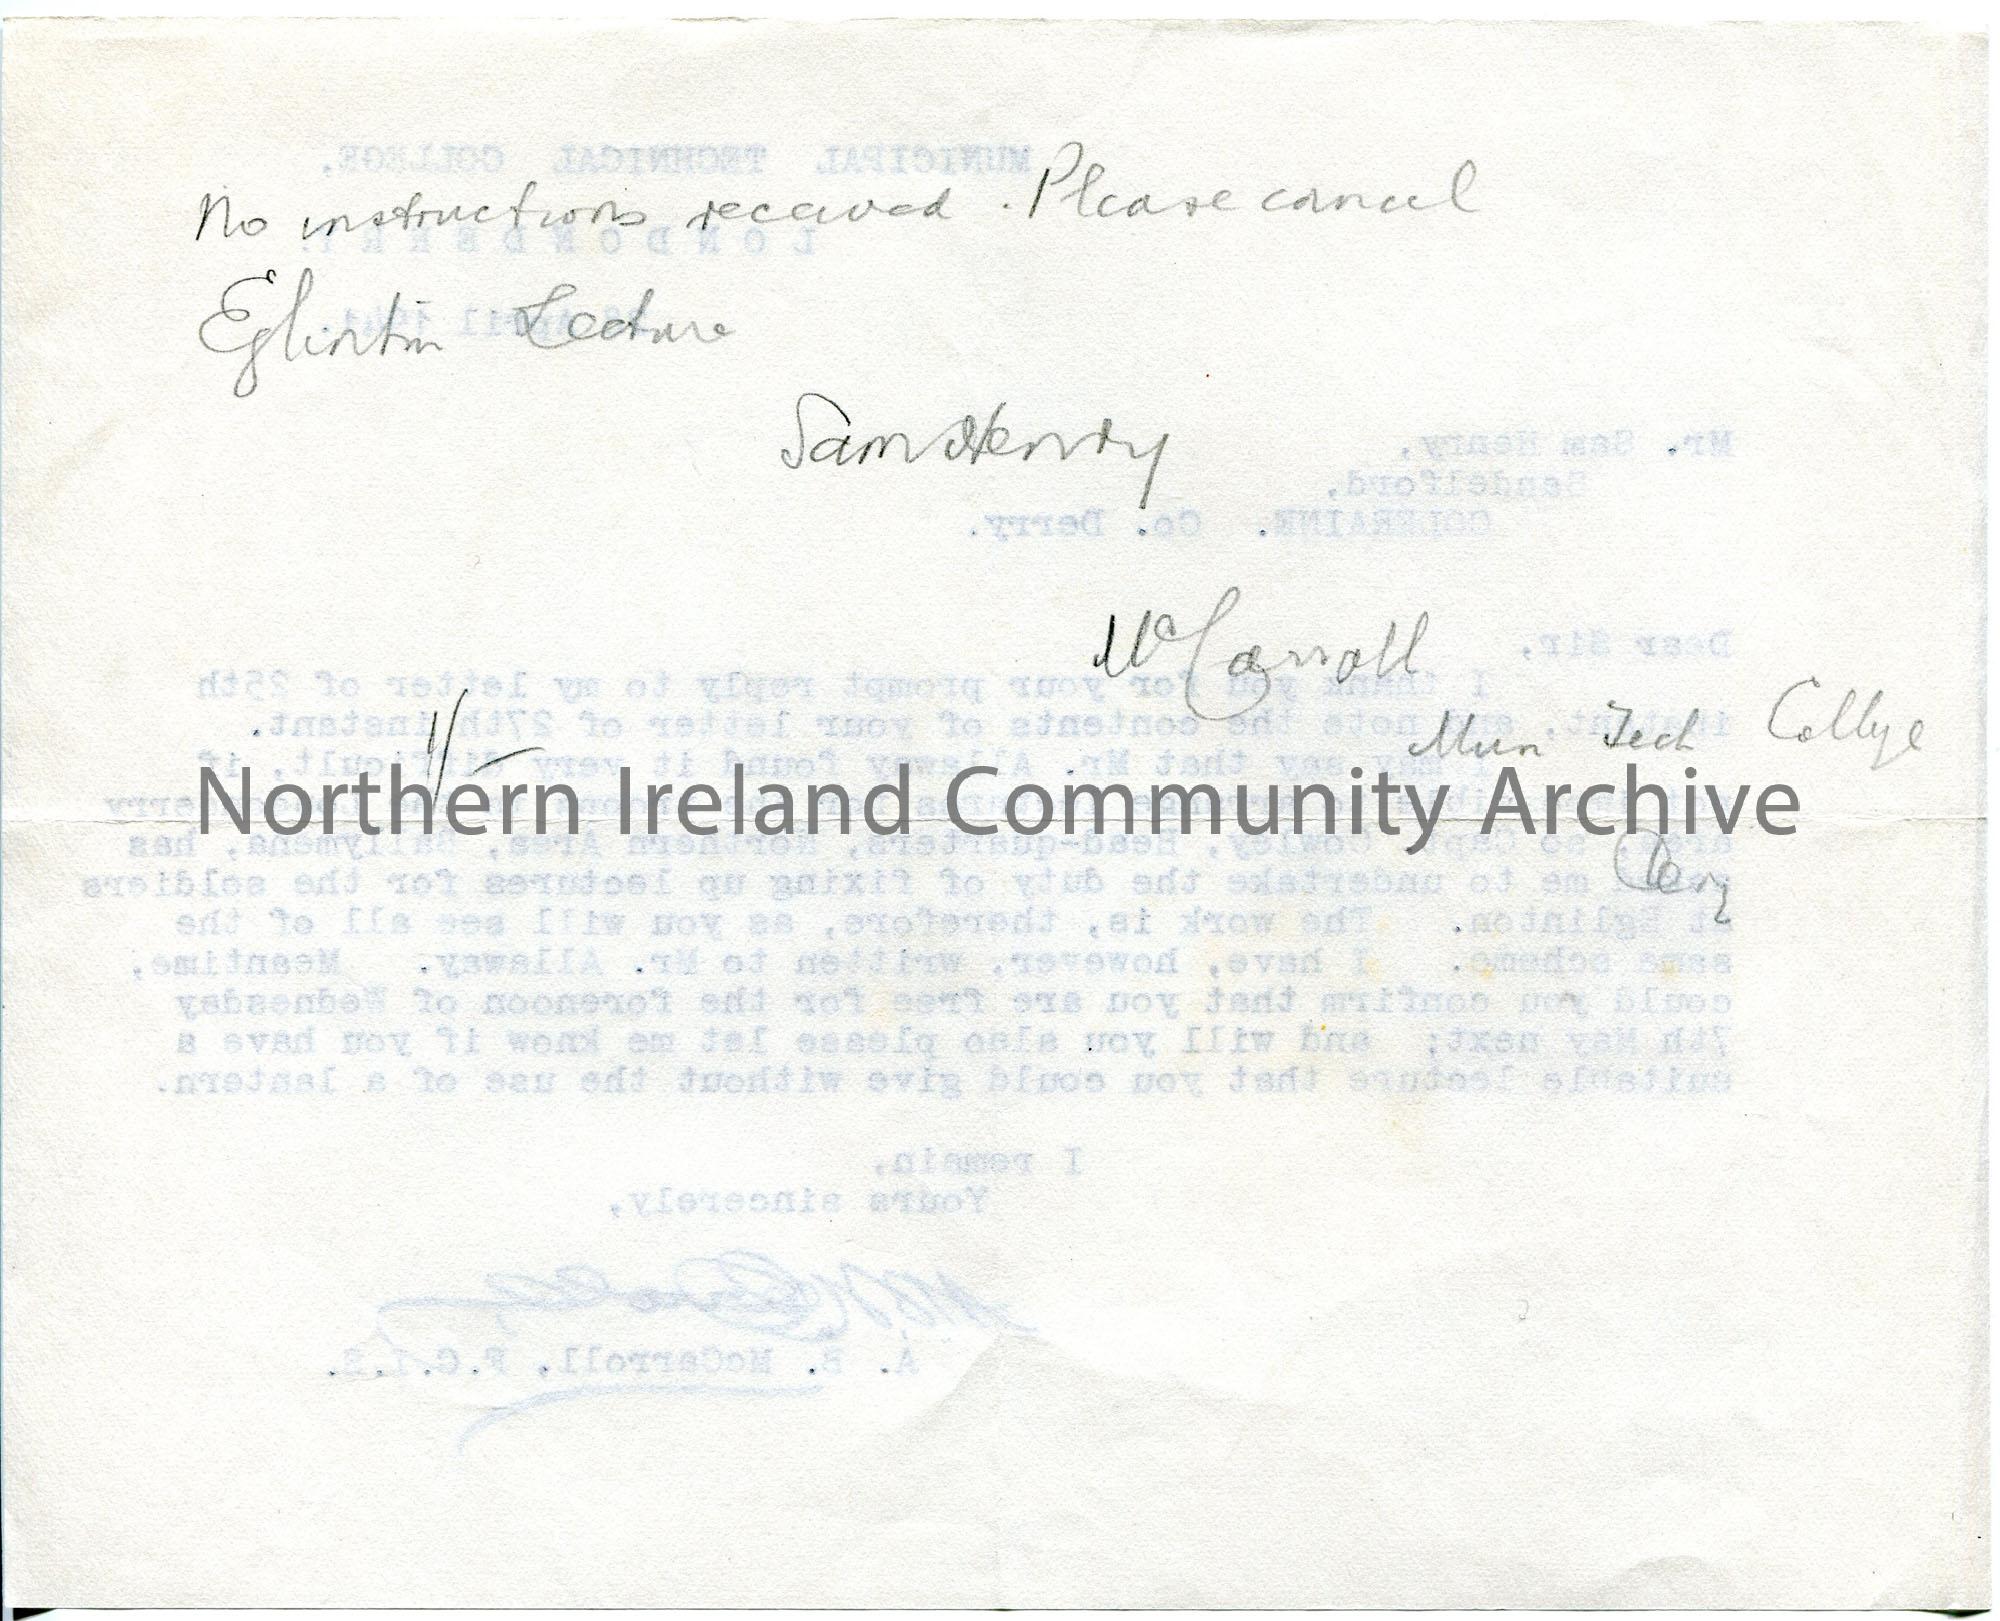 No instructions received. Please cancel
Eglinton Lecture
Sam Henry
McCarroll
Mun Tech College
Derry
1/-
Northern Ireland Community Archive
MUNICIPAL TECHNICAL COLLEGE,
LONDONDERRY.
April 1941.
Mr. Sam Henry,
Sandelford,
COLERAINE. Co. Derry.
Dear Sir,
I thank you for your prompt reply to my letter of 25th
instant, and note the contents of your letter of 27th instant.
I may say that Mr. Allaway found it very difficult, if
area, so Capt. Cowley, Head-quarters, Northern Area, Ballymena, has
asked me to undertake the duty of fixing up lectures for the soldiers
at Eglinton. The work is, therefore, as you will see all of the
same scheme. I have, however, written to Mr. Allaway. Meantime,
could you confirm that you are free for the forenoon of Wednesday
7th May next; and will you also please let me know if you have a
suitable lecture that you could give without the use of a lantern.
I remain,
Yours sincerely,
A. E. McCarroll, F.C.I.S.